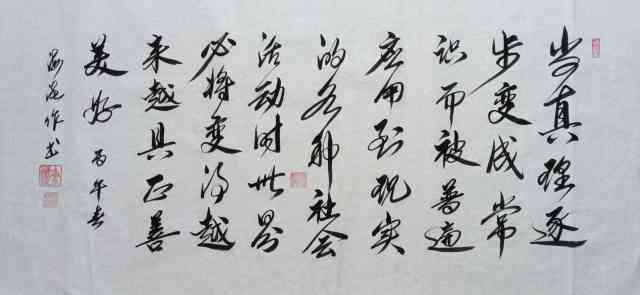 当真理逐
步变成常
识而被普遍
应用到现实
的各种社会
活动时世界
必将变得越
来越具正善
美好 丙午春
作书